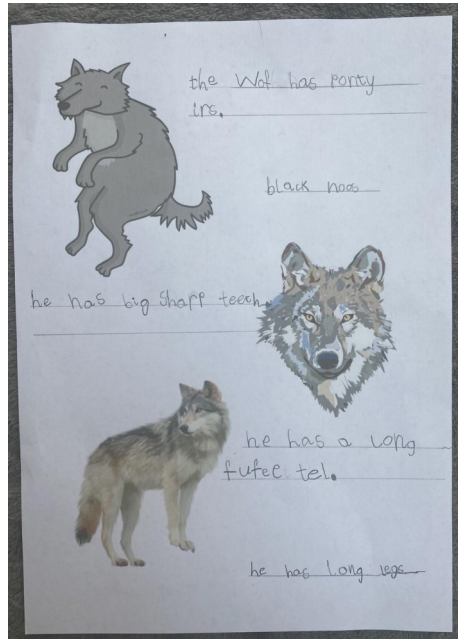 the Wof has ponty
irs.
black noos
he has big sharp teeth.
he has a long
fufee tel.
he has long legs